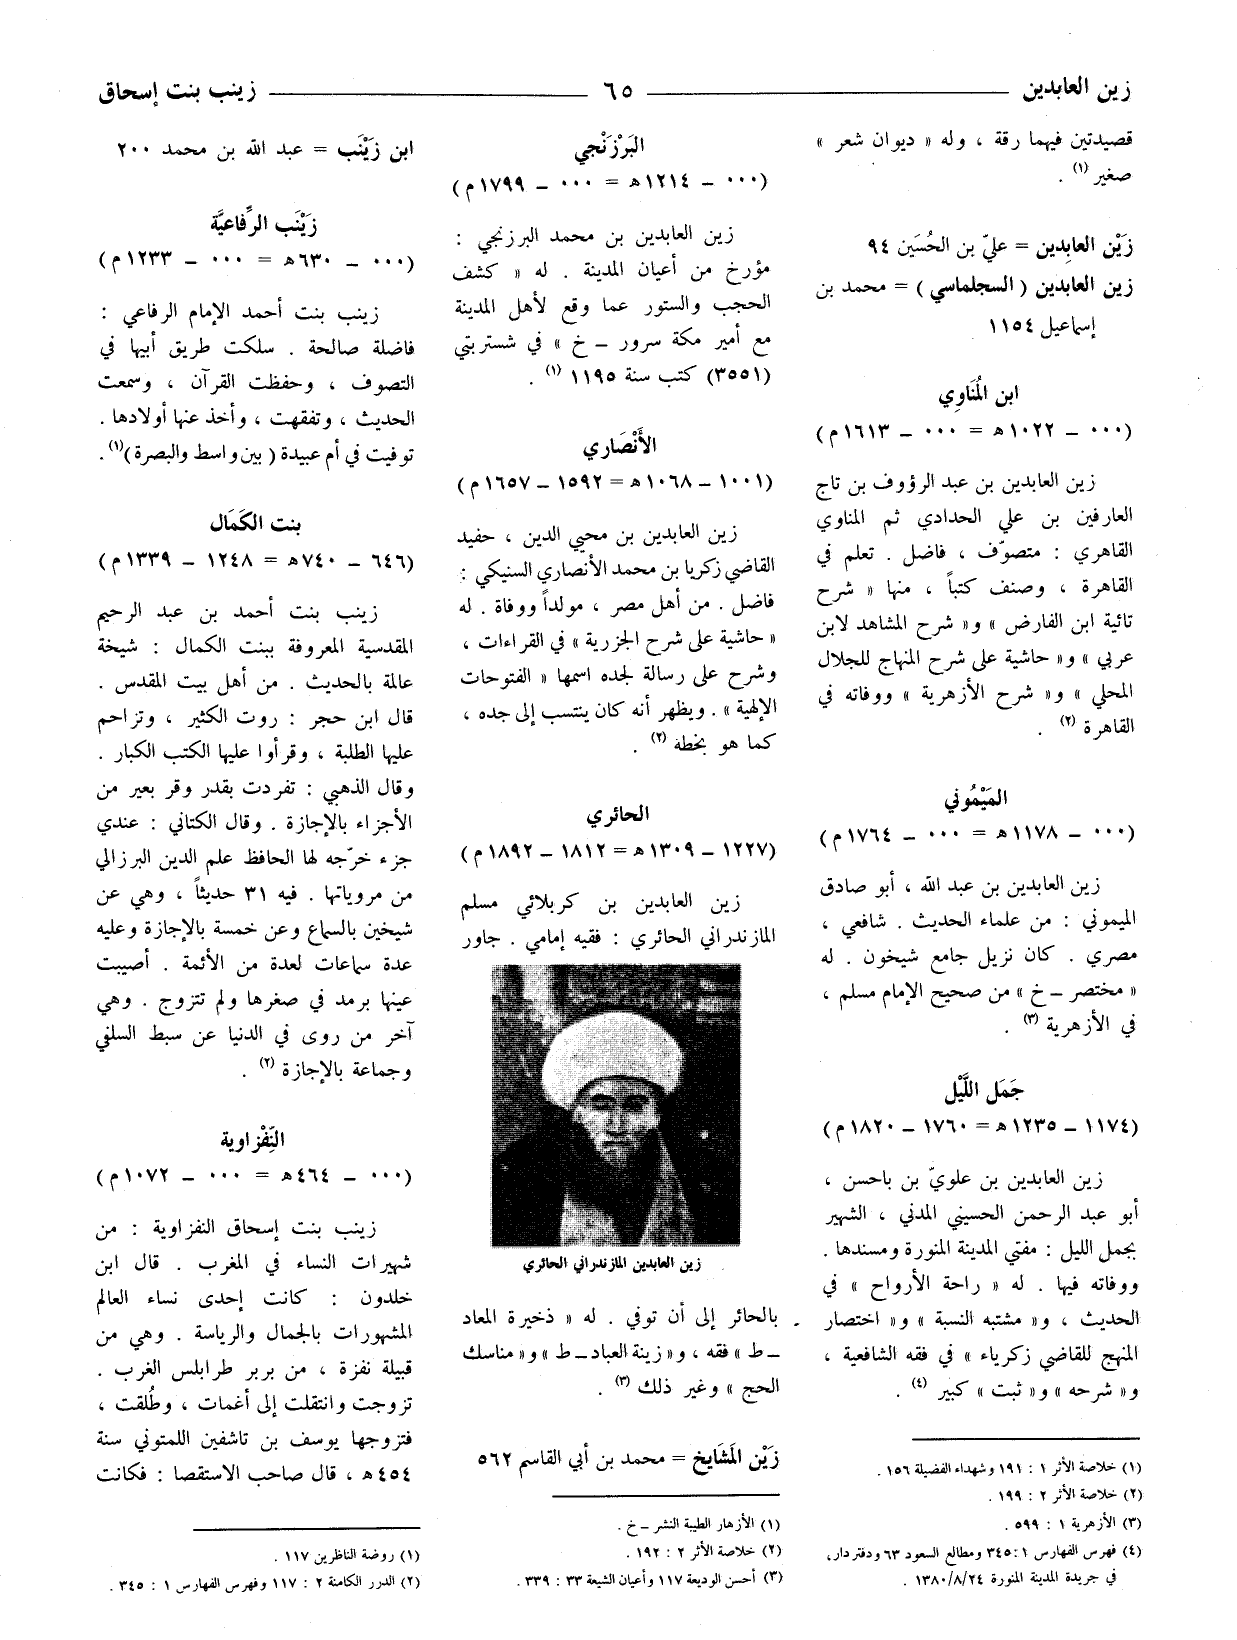 زين العابدين ــــــ ٦٥ ــــــ زينب بنت إسحاق
قصيدتين فيهما رقة ، وله « ديوان شعر »
صغير (١) .
زَيْن العابِدين = عليّ بن الحُسَين ٩٤
زين العابدين ( السجلماسي ) = محمد بن
إسماعيل ١١٥٤
ابن المُنَاوِي
(٠٠٠ ــ ١٠٢٢هـ = ٠٠٠ ــ ١٦١٣م)
زين العابدين بن عبد الرؤوف بن تاج
العارفين بن علي الحدادي ثم المناوي
القاهري : متصوّف ، فاضل . تعلم في
القاهرة ، وصنف كتباً ، منها « شرح
تائية ابن الفارض » و« شرح المشاهد لابن
عربي » و« حاشية على شرح المنهاج للجلال
المحلي » و« شرح الأزهرية » ووفاته في
القاهرة (٢) .
المَيْمُوني
(٠٠٠ ــ ١١٧٨هـ = ٠٠٠ ــ ١٧٦٤م)
زين العابدين بن عبد الله ، أبو صادق
الميموني : من علماء الحديث . شافعي ،
مصري . كان نزيل جامع شيخون . له
« مختصر ــ خ » من صحيح الإمام مسلم ،
في الأزهرية (٣) .
جَمَل اللَّيْل
(١١٧٤ ــ ١٢٣٥هـ = ١٧٦٠ ــ ١٨٢٠م)
زين العابدين بن علويّ بن باحسن ،
أبو عبد الرحمن الحسيني المدني ، الشهير
بجمل الليل : مفتي المدينة المنورة ومسندها .
ووفاته فيها . له « راحة الأرواح » في
الحديث ، و« مشتبه النسبة » و« اختصار
المنهج للقاضي زكرياء » في فقه الشافعية ،
و« شرحه » و« ثبت » كبير (٤) .
(١) خلاصة الأثر ١ : ١٩١ وشهداء الفضيلة ١٥٦ .
(٢) خلاصة الأثر ٢ : ١٩٩ .
(٣) الأزهرية ١ : ٥٩٩ .
(٤) فهرس الفهارس ١ : ٣٤٥ ومطالع السعود ٦٣ ودفتر دار،
في جريدة المدينة المنورة ١٣٨٠/٨/٢٤ .
البَرْزَنْجي
(٠٠٠ ــ ١٢١٤هـ = ٠٠٠ ــ ١٧٩٩م)
زين العابدين بن محمد البرزنجي :
مؤرخ من أعيان المدينة . له « كشف
الحجب والستور عما وقع لأهل المدينة
مع أمير مكة سرور ــ خ » في شستربتي
(٣٥٥١) كتب سنة ١١٩٥ (١) .
الأَنْصَاري
(١٠٠١ ــ ١٠٦٨هـ = ١٥٩٢ ــ ١٦٥٧م)
زين العابدين بن محيي الدين ، حفيد
القاضي زكريا بن محمد الأنصاري السنيكي :
فاضل . من أهل مصر ، مولداً ووفاة . له
« حاشية على شرح الجزرية » في القراءات ،
وشرح على رسالة لجده اسمها « الفتوحات
الإلهية » . ويظهر أنه كان ينتسب إلى جده ،
كما هو بخطه (٢) .
الحائري
(١٢٢٧ ــ ١٣٠٩هـ = ١٨١٢ ــ ١٨٩٢م)
زين العابدين بن كربلائي مسلم
المازندراني الحائري : فقيه إمامي . جاور
زين العابدين المازندراني الحائري .
بالحائر إلى أن توفي . له « ذخيرة المعاد
ــ ط » فقه ، و« زينة العباد ــ ط » و« مناسك
الحج » وغير ذلك (٣) .
زَيْن المَشَايخ = محمد بن أبي القاسم ٥٦٢
(١) الأزهار الطيبة النشر ــ خ .
(٢) خلاصة الأثر ٢ : ١٩٢ .
(٣) أحسن الوديعة ١١٧ وأعيان الشيعة ٣٣ : ٣٣٩ .
ابن زَيْنَب = عبد الله بن محمد ٢٠٠
زَيْنَب الرِّفاعيَّة
(٠٠٠ ــ ٦٣٠هـ = ٠٠٠ ــ ١٢٣٣م)
زينب بنت أحمد الإمام الرفاعي :
فاضلة صالحة . سلكت طريق أبيها في
التصوف ، وحفظت القرآن ، وسمعت
الحديث ، وتفقهت ، وأخذ عنها أولادها .
توفيت في أم عبيدة ( بين واسط والبصرة )(١) .
بنت الكَمَال
(٦٤٦ ــ ٧٤٠هـ = ١٢٤٨ ــ ١٣٣٩م)
زينب بنت أحمد بن عبد الرحيم
المقدسية المعروفة ببنت الكمال : شيخة
عالمة بالحديث . من أهل بيت المقدس .
قال ابن حجر : روت الكثير ، وتزاحم
عليها الطلبة ، وقرأوا عليها الكتب الكبار .
وقال الذهبي : تفردت بقدر وقر بعير من
الأجزاء بالإجازة . وقال الكتاني : عندي
جزء خرّجه لها الحافظ علم الدين البرزالي
من مروياتها . فيه ٣١ حديثاً ، وهي عن
شيخين بالسماع وعن خمسة بالإجازة وعليه
عدة سماعات لعدة من الأئمة . أصيبت
عينها برمد في صغرها ولم تتزوج . وهي
آخر من روى في الدنيا عن سبط السلفي
وجماعة بالإجازة (٢) .
النَّفْزاوية
(٠٠٠ ــ ٤٦٤هـ = ٠٠٠ ــ ١٠٧٢م)
زينب بنت إسحاق النفزاوية : من
شهيرات النساء في المغرب . قال ابن
خلدون : كانت إحدى نساء العالم
المشهورات بالجمال والرياسة . وهي من
قبيلة نفزة ، من بربر طرابلس الغرب .
تزوجت وانتقلت إلى أغمات ، وطُلقت ،
فتزوجها يوسف بن تاشفين اللمتوني سنة
٤٥٤ هـ ، قال صاحب الاستقصا : فكانت
(١) روضة الناظرين ١١٧ .
(٢) الدرر الكامنة ٢ : ١١٧ وفهرس الفهارس ١ : ٣٤٥ .